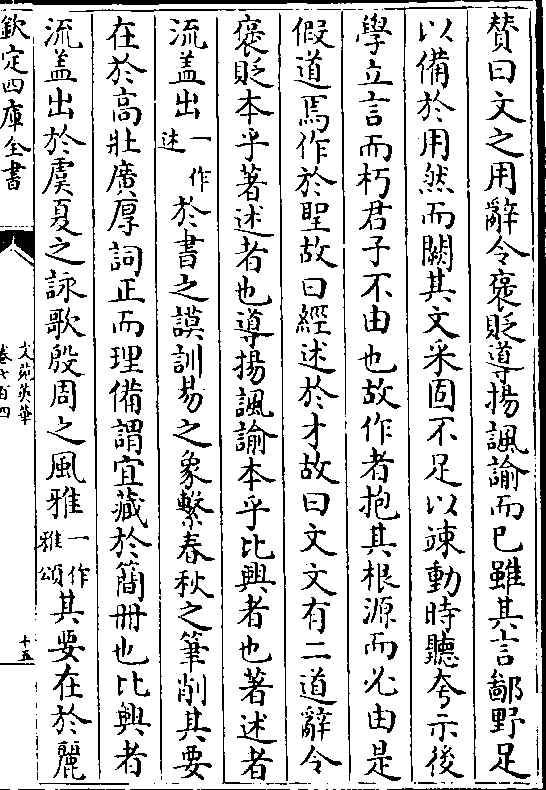 賛曰文之用辭令褒貶導揚諷諭而已雖其言鄙野足
以備於用然而闕其文采固不足以竦動時聽夸示後
學立言而朽君子不由也故作者抱其根源而必由是
假道焉作於聖故曰經述於才故曰文文有二道辭令
褒貶本乎著述者也導揚諷諭本乎比興者也著述者
流盖出一作述於書之謨訓易之象繫春秋之筆削其要
在於高壯廣厚詞正而理備謂宜藏於簡冊也比興者
流盖出於虞夏之詠歌殷周之風雅一作雅頌其要在於麗
欽定四庫全書
文苑英華
卷七百四
十五